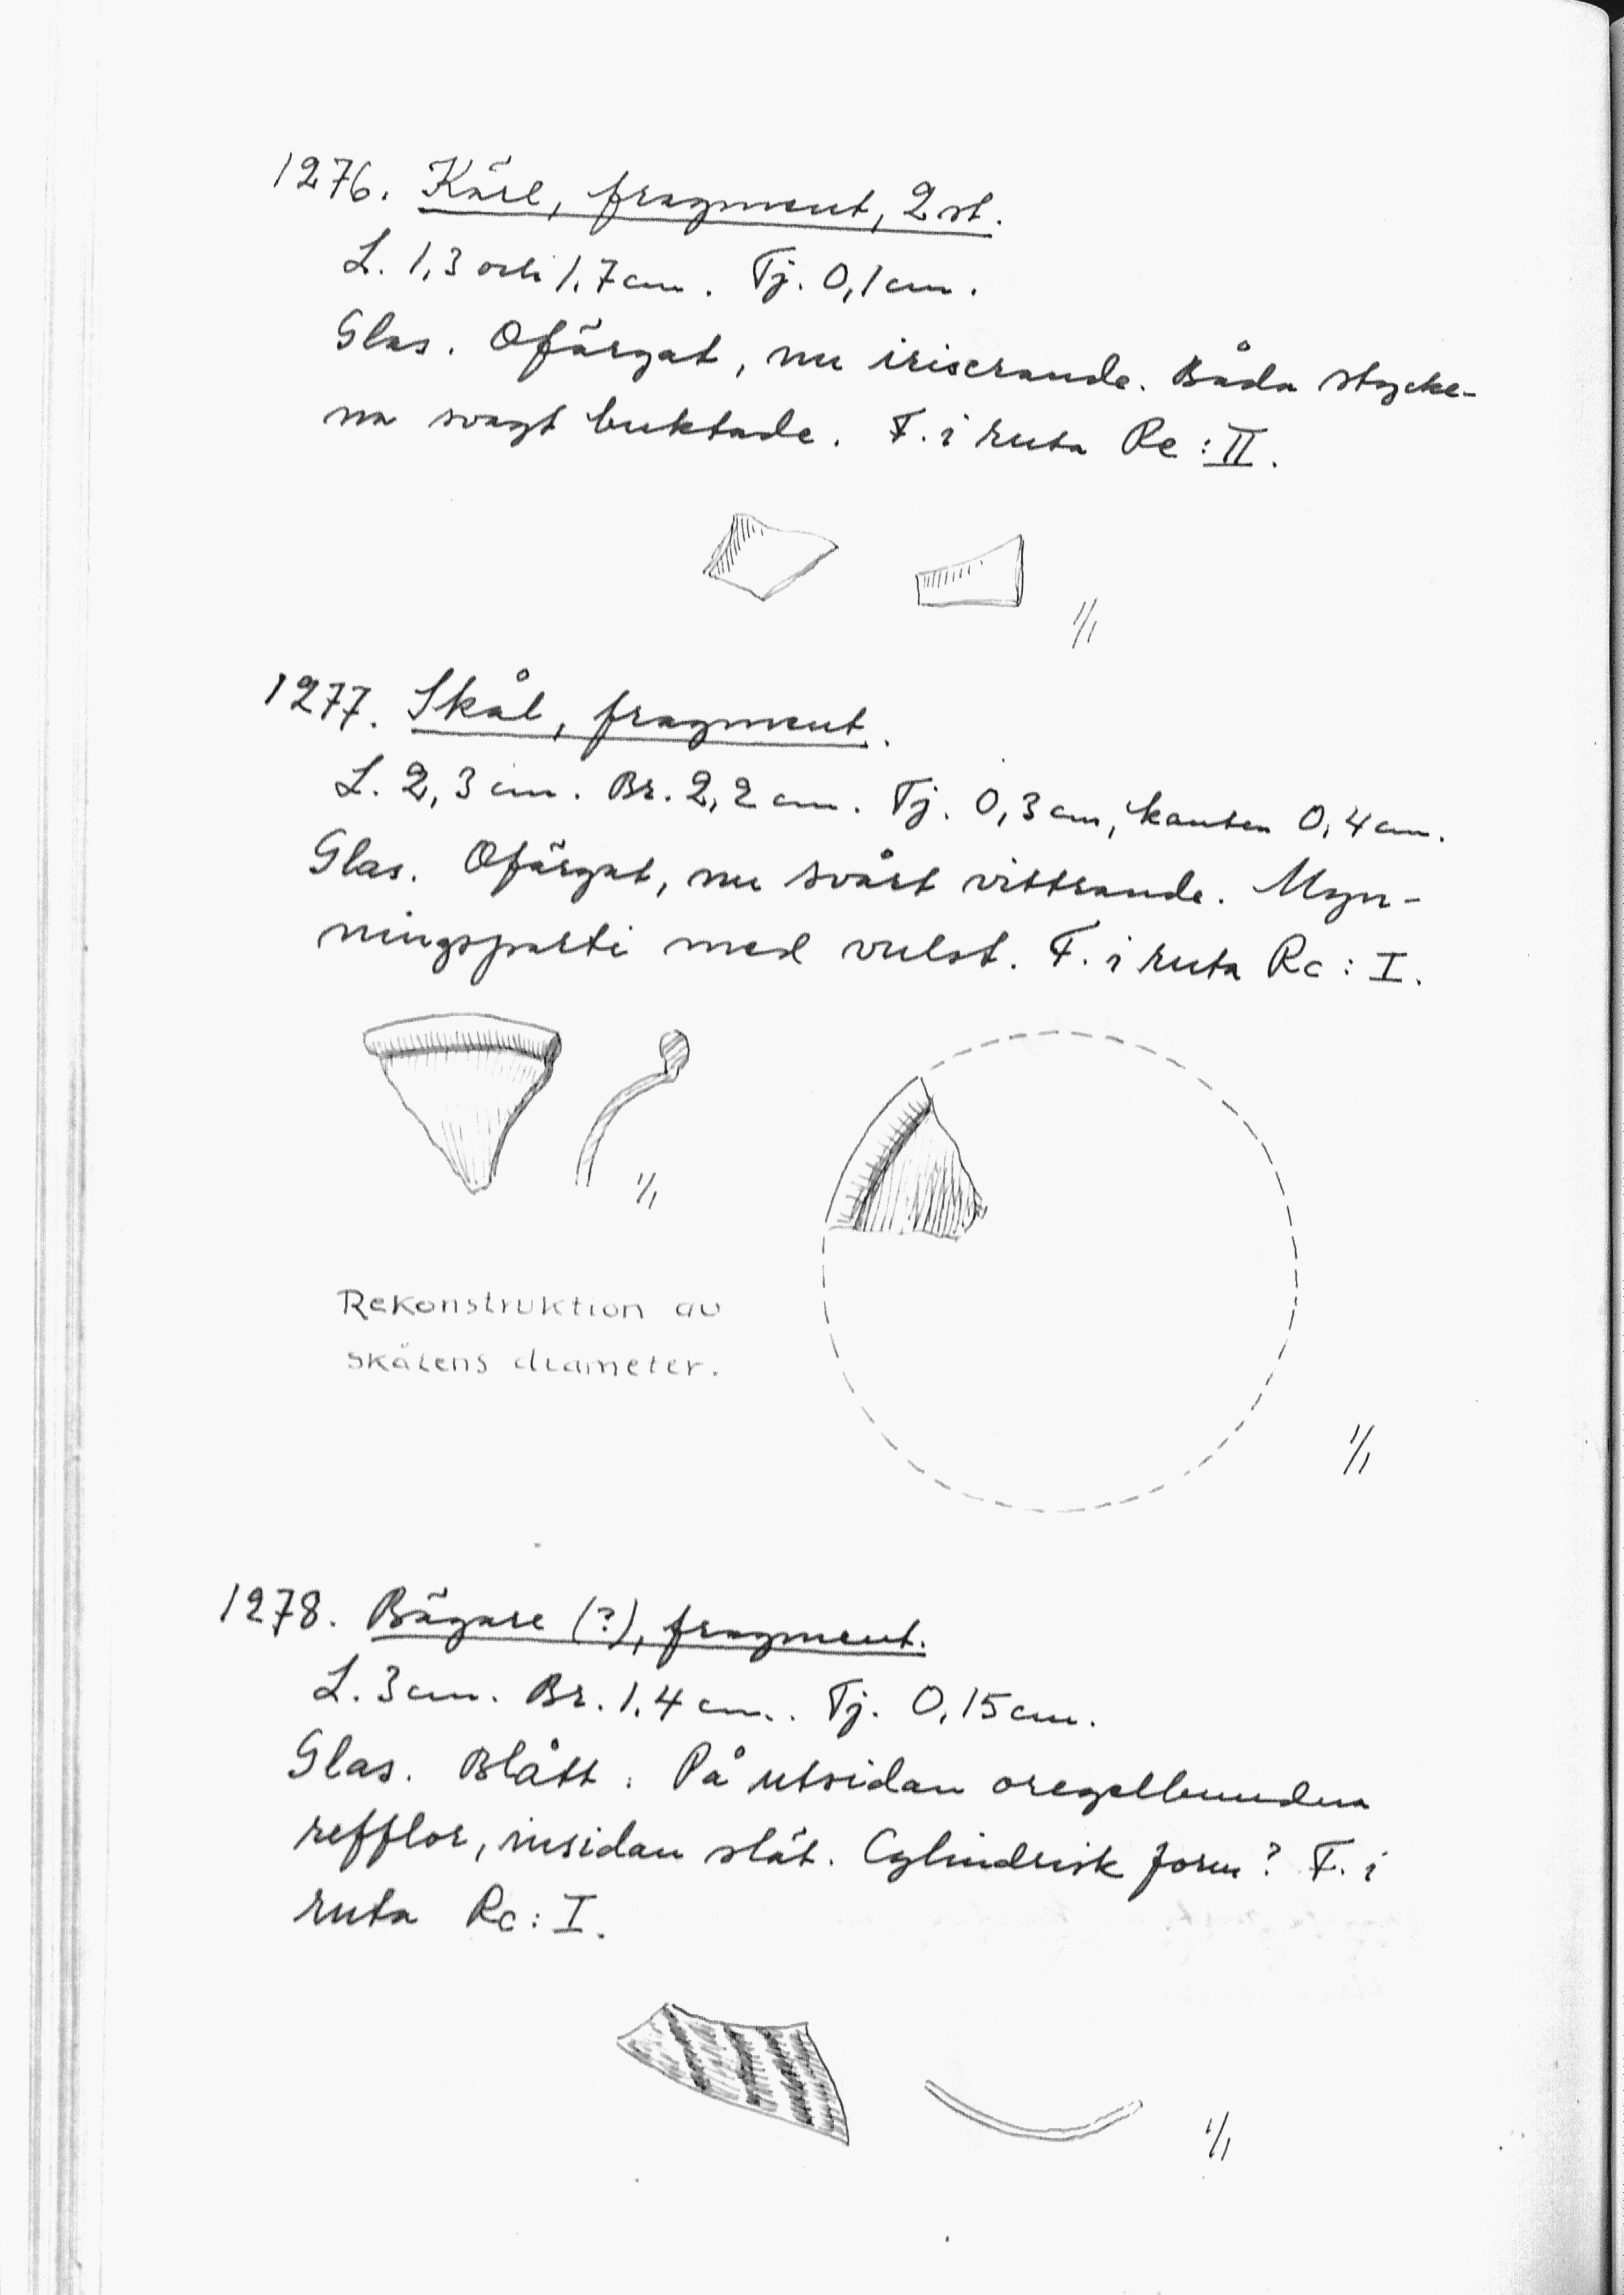 1276. Kärl, fragment, 2 st.
L. 1,3 och 1,7 cm. Tj. 0,1 cm.
Glas. Ofärgat, nu iriserande. Båda stycke-
na svagt buktade. F. i ruta Re : II.
1/1
1277. Skål, fragment.
L. 2,3 cm. Br. 2,2 cm. Tj. 0,3 cm, kanten 0,4 cm.
Glas. Ofärgat, nu svårt vittrande. Myn-
ningsparti med vulst. F. i ruta Rc : I.
1/1
Rekonstruktion av
skålens diameter.
1/1
1278. Bägare (?), fragment.
L. 3 cm. Br. 1,4 cm. Tj. 0,15 cm.
Glas. Blått. På utsidan oregelbundna
refflor, insidan slät. Cylindrisk form? F. i
ruta Rc : I.
1/1